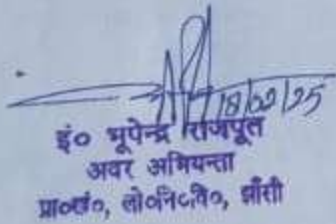 18/02/25
इं० भूपेन्द्र राजपूत
अवर अभियन्ता
प्रा०खं०, लो०नि०वि०, झाँसी